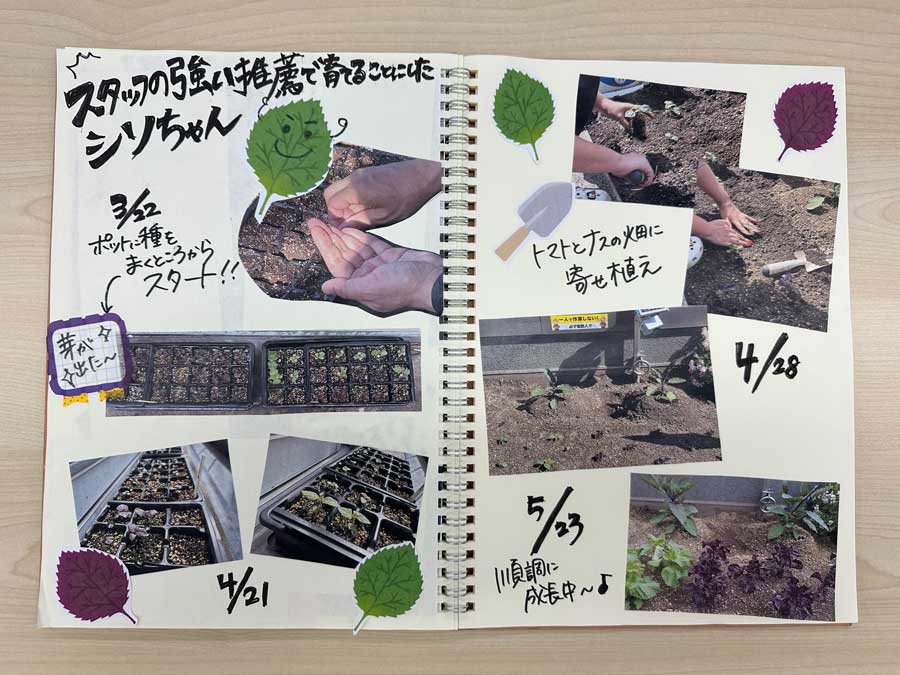 スタッフの強い推薦で育てることにした
シソちゃん
3/22
ポットに種を
まくところから
スタート!!
芽が
出た〜
4/21
トマトとナスの畑に
寄せ植え
4/28
一人で作業しない!
5/23
順調に
成長中〜♪